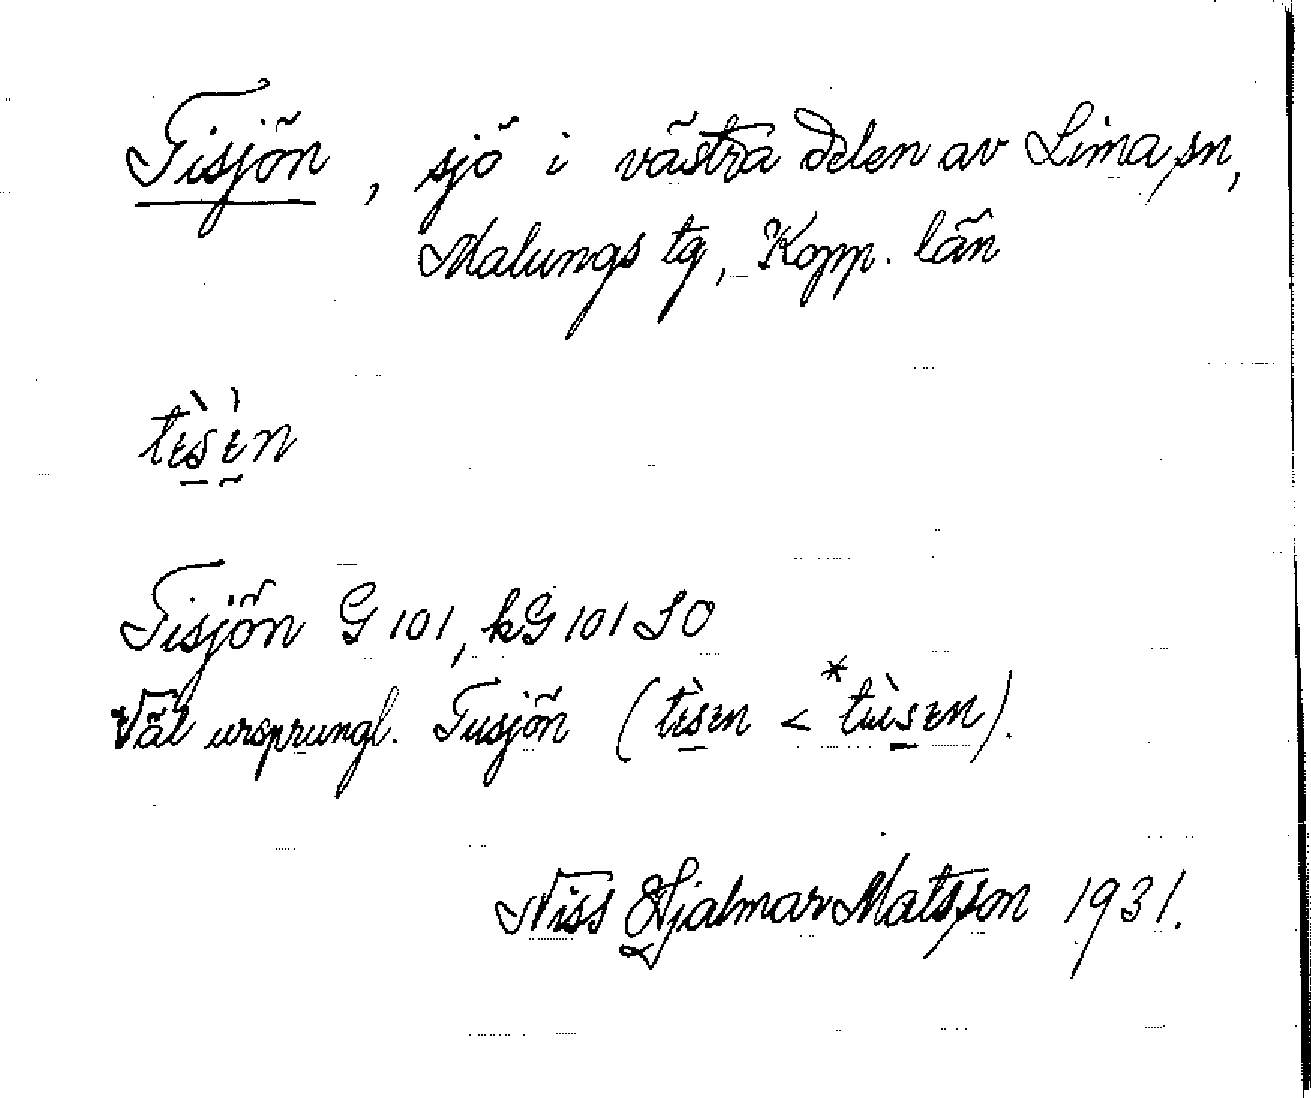 Tisjön, sjö i västra delen av Lima sn,
Malungs tg, Kopp. län
tɛ̀sɛ̀n
Tisjön G 101, kG 101 SO
Väl ursprungl. Tusjön (tɛ̀sɛn < *tùsɛn).
Niss Hjalmar Matsson 1931.